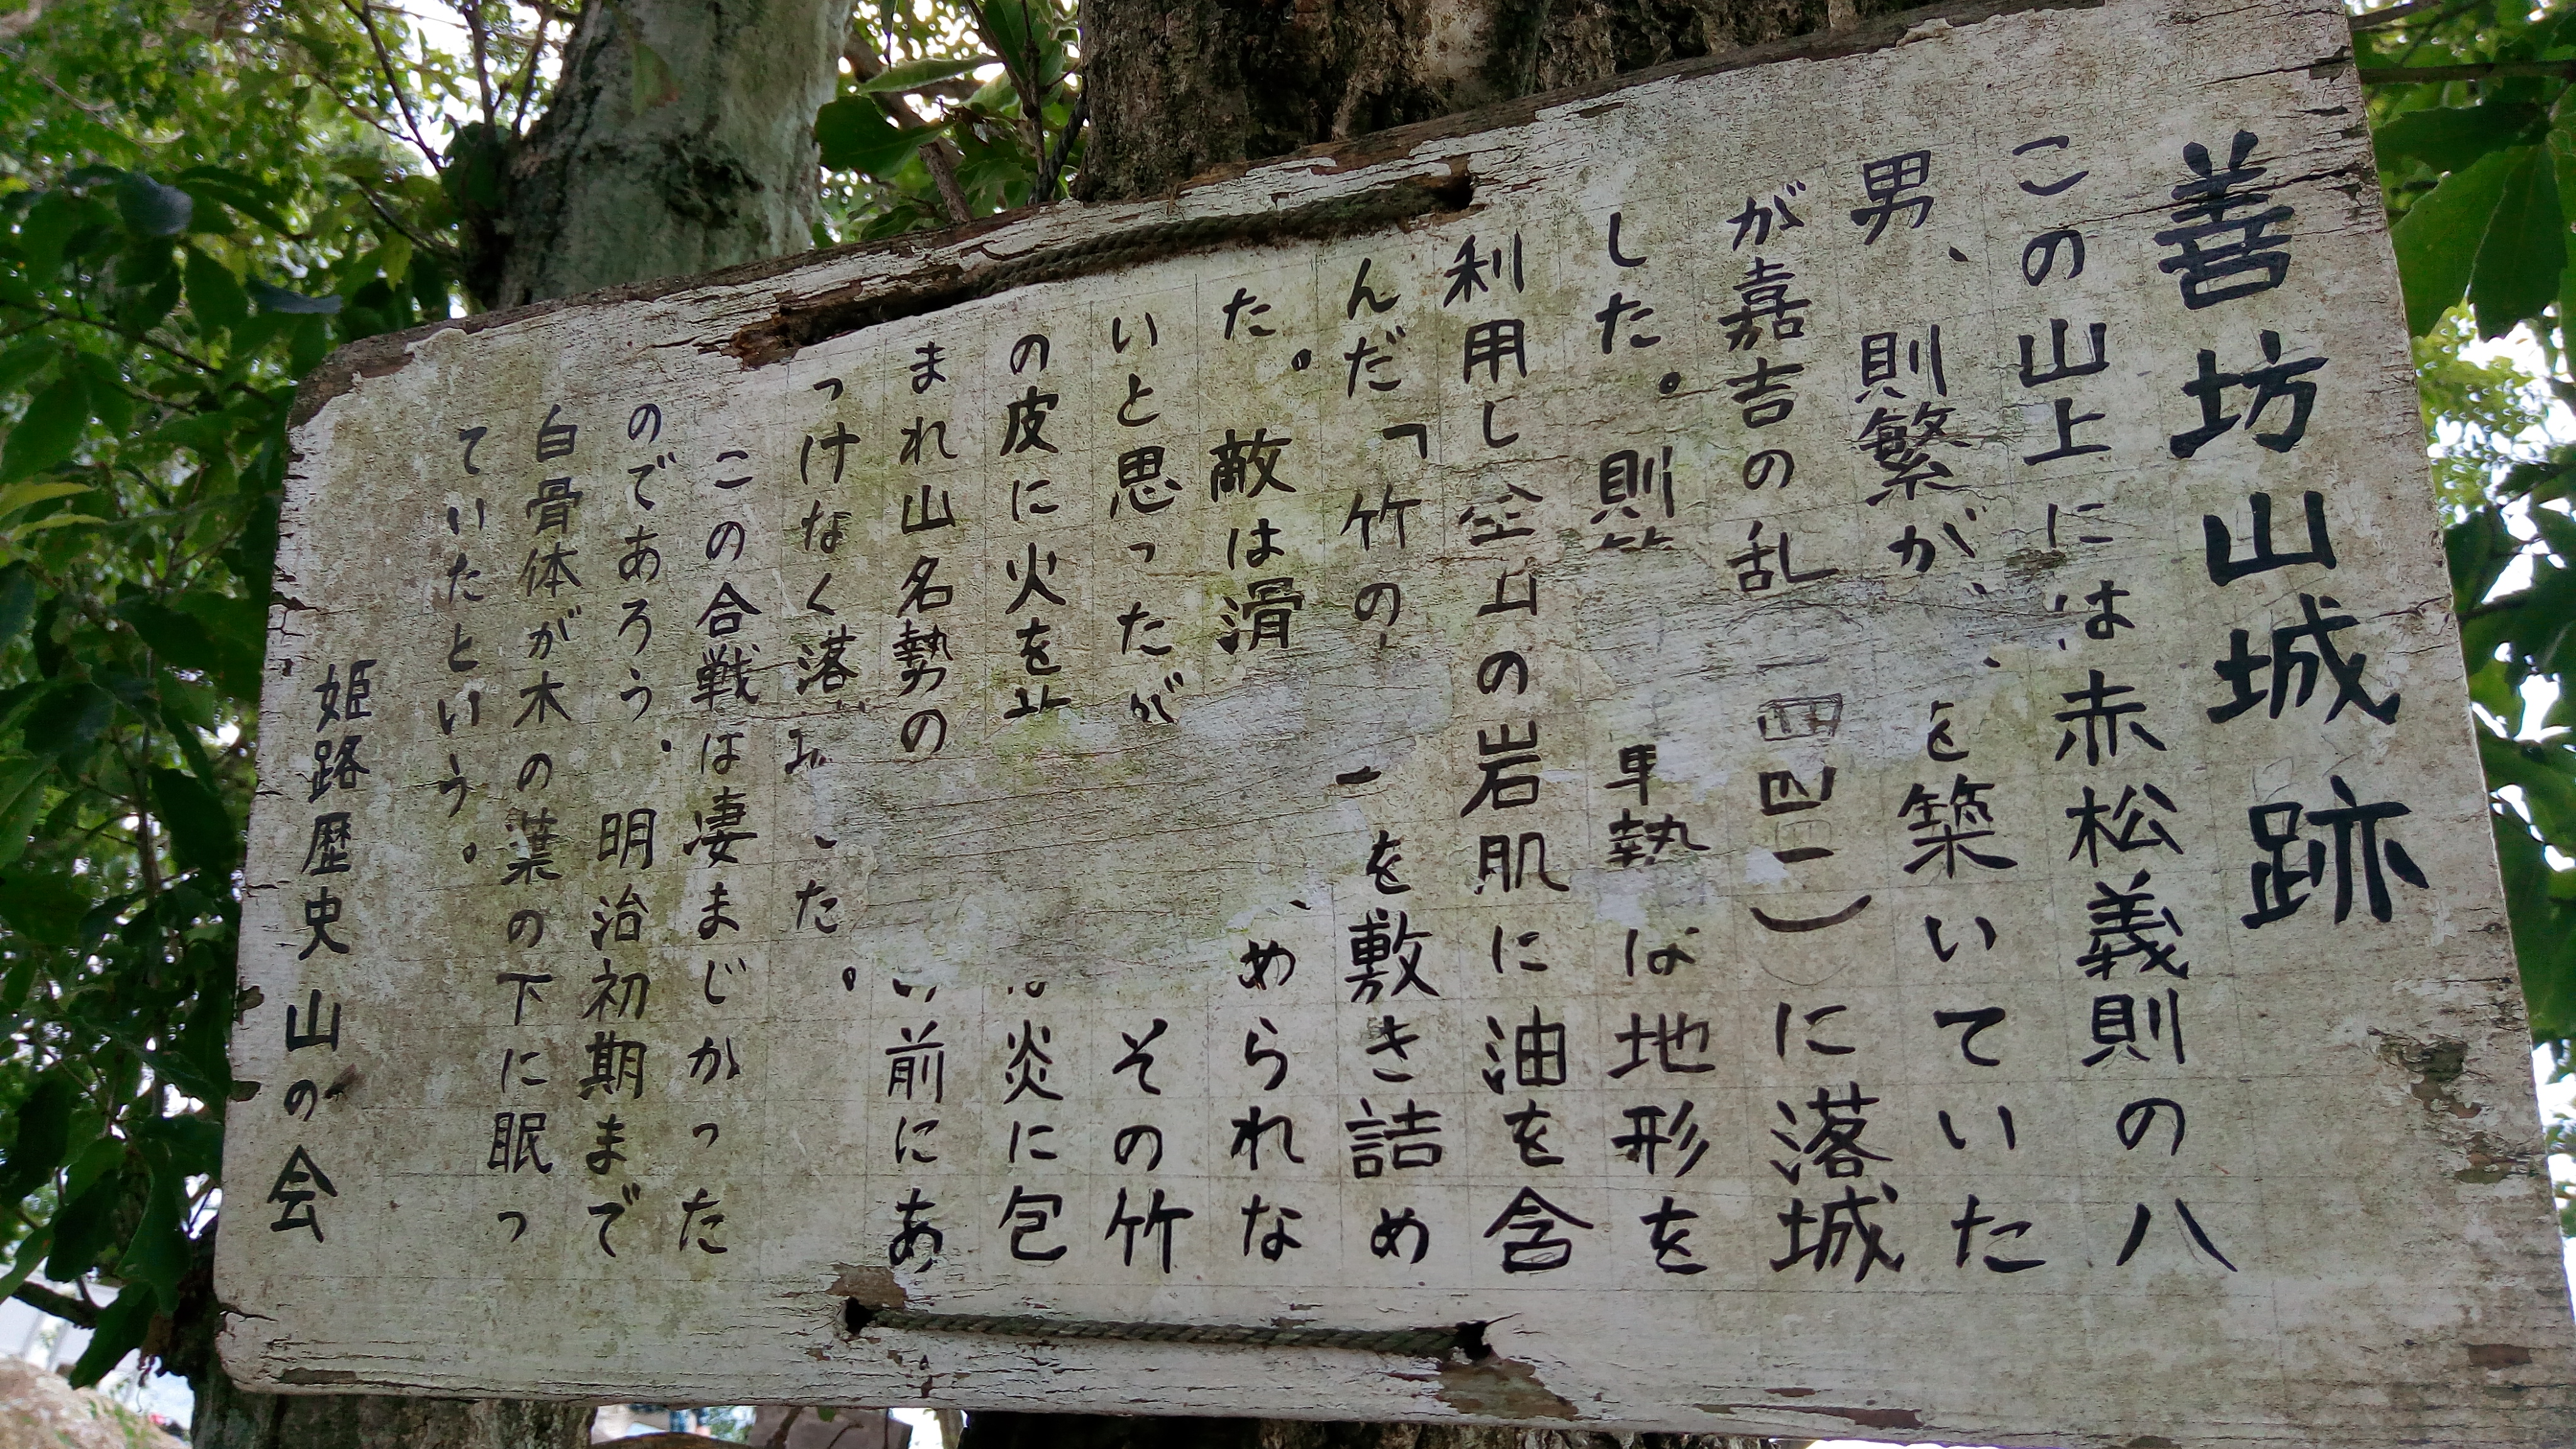 善坊山城跡
この山上には赤松義則の八
男、則繁が、 を築いていた
が嘉吉の乱 一四四一)に落城
した。則 勢は地形を
利用し全山の岩肌に油を含
んだ「竹の を敷き詰め
た。敵は滑 められな
いと思ったが その竹
の皮に火を 炎に包
まれ山名勢の 前にあ
っけなく落 た。
この合戦は凄まじかった
のであろう、明治初期まで
白骨体が木の葉の下に眠っ
ていたという。
姫路歴史山の会